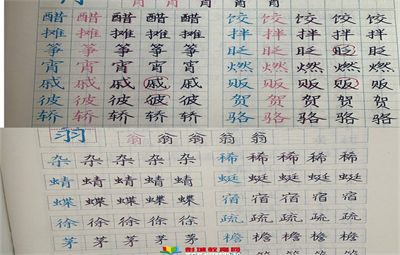 宵 宵 宵 宵 宵
醋 醋 醋 醋 醋 饺 饺 饺 饺 饺
摊 摊 摊 摊 摊 拌 拌 拌 拌 拌
筝 筝 筝 筝 筝 眨 眨 眨 眨 眨
宵 宵 宵 宵 宵 燃 燃 燃 燃 燃
戚 戚 戚 戚 戚 贩 贩 贩 贩 贩
彼 彼 彼 彼 彼 贺 贺 贺 贺 贺
轿 轿 轿 轿 轿 骆 骆 骆 骆 骆
翁 翁 翁 翁 翁 翁
杂 杂 杂 杂 杂 稀 稀 稀 稀 稀
蜻 蜻 蜻 蜻 蜻 蜓 蜓 蜓 蜓 蜓
蝶 蝶 蝶 蝶 蝶 宿 宿 宿 宿 宿
徐 徐 徐 徐 徐 疏 疏 疏 疏 疏
茅 茅 茅 茅 茅 檐 檐 檐 檐 檐